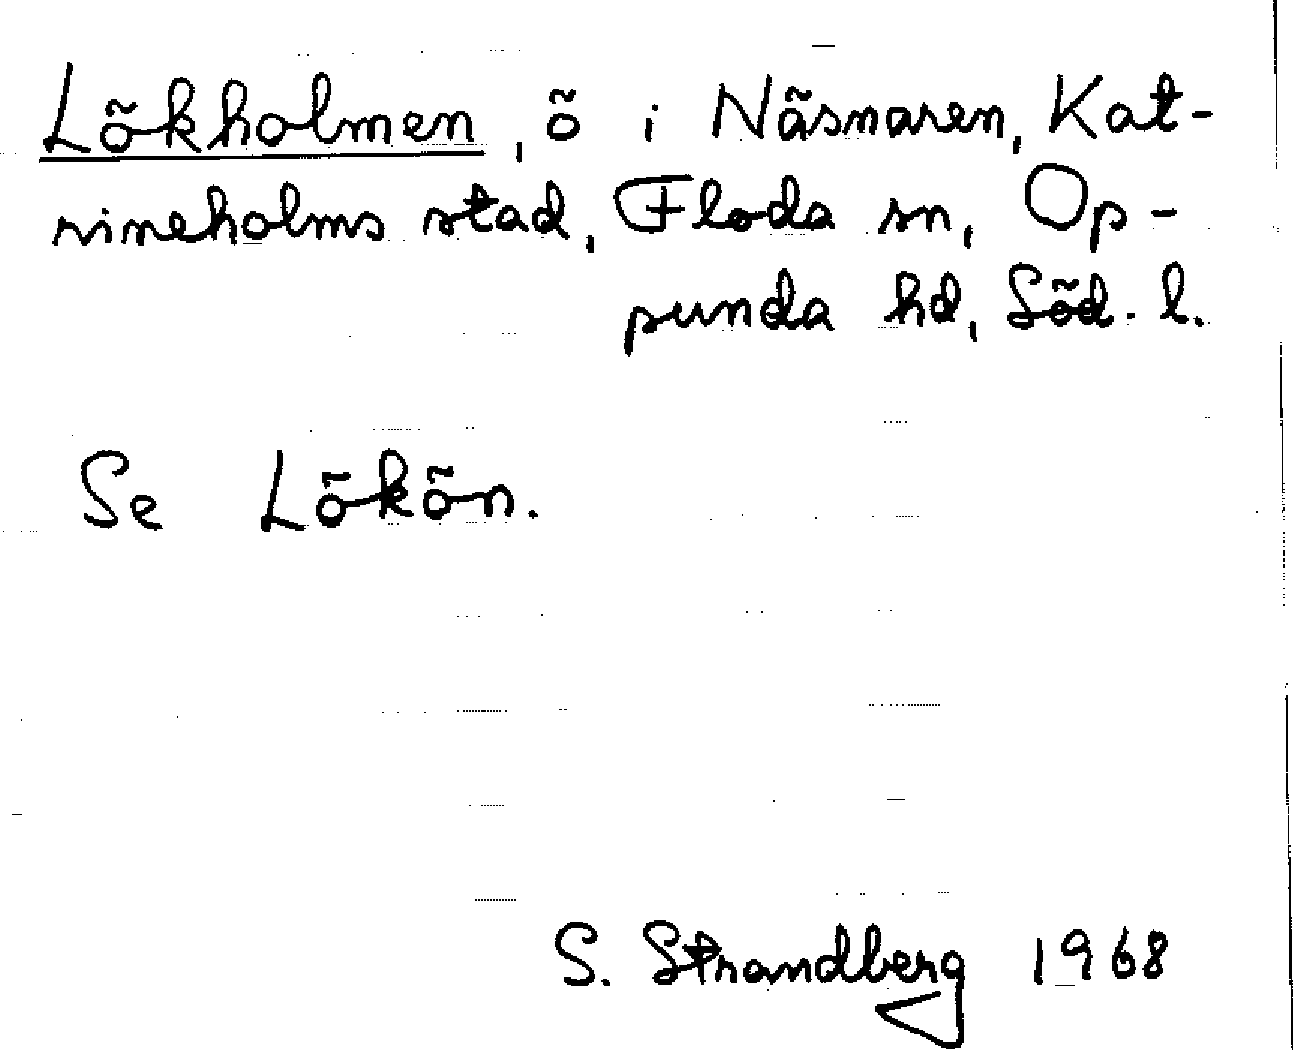 Lökholmen, ö i Näsnaren, Kat-
rineholms stad, Floda sn, Op-
punda hd, Söd. l.
Se Lökön.
S. Strandberg 1968